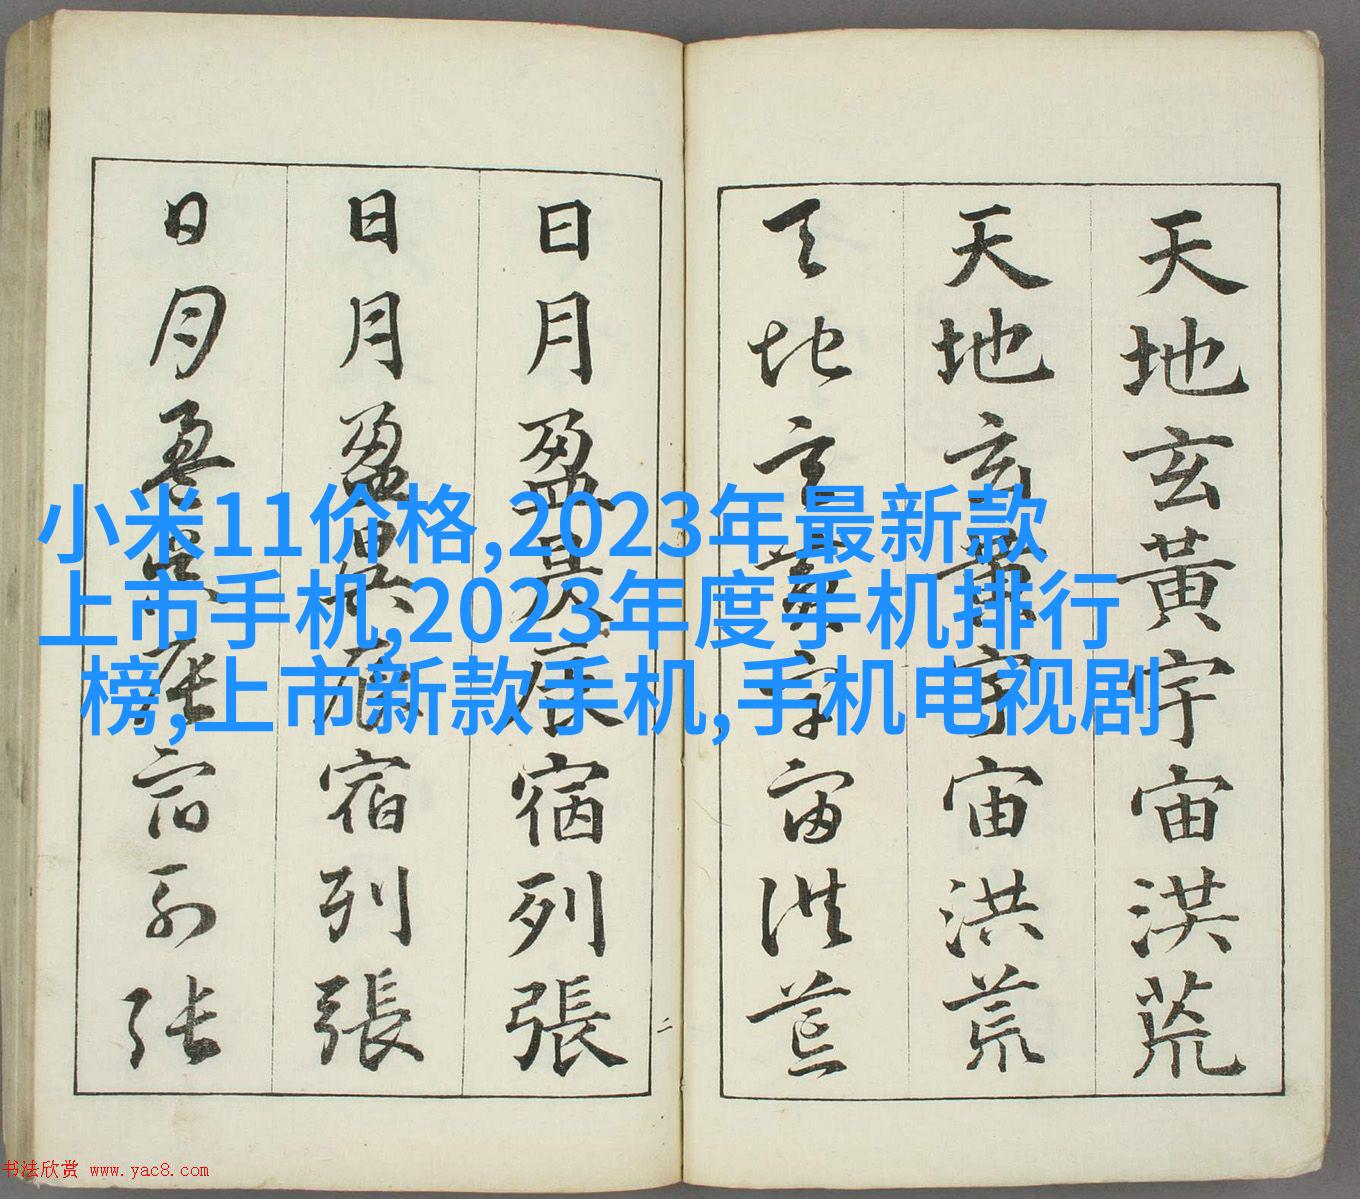 天地玄黃宇宙洪荒
天地玄黃宇宙洪荒
天地玄黃宇宙洪荒
日月盈昃辰宿列張
日月盈昃辰宿列張
日月盈昃辰宿列張
二
小米11价格,2023年最新款
上市手机,2023年度手机排行
榜,上市新款手机,手机电视剧
书法欣赏 www.yac8.com